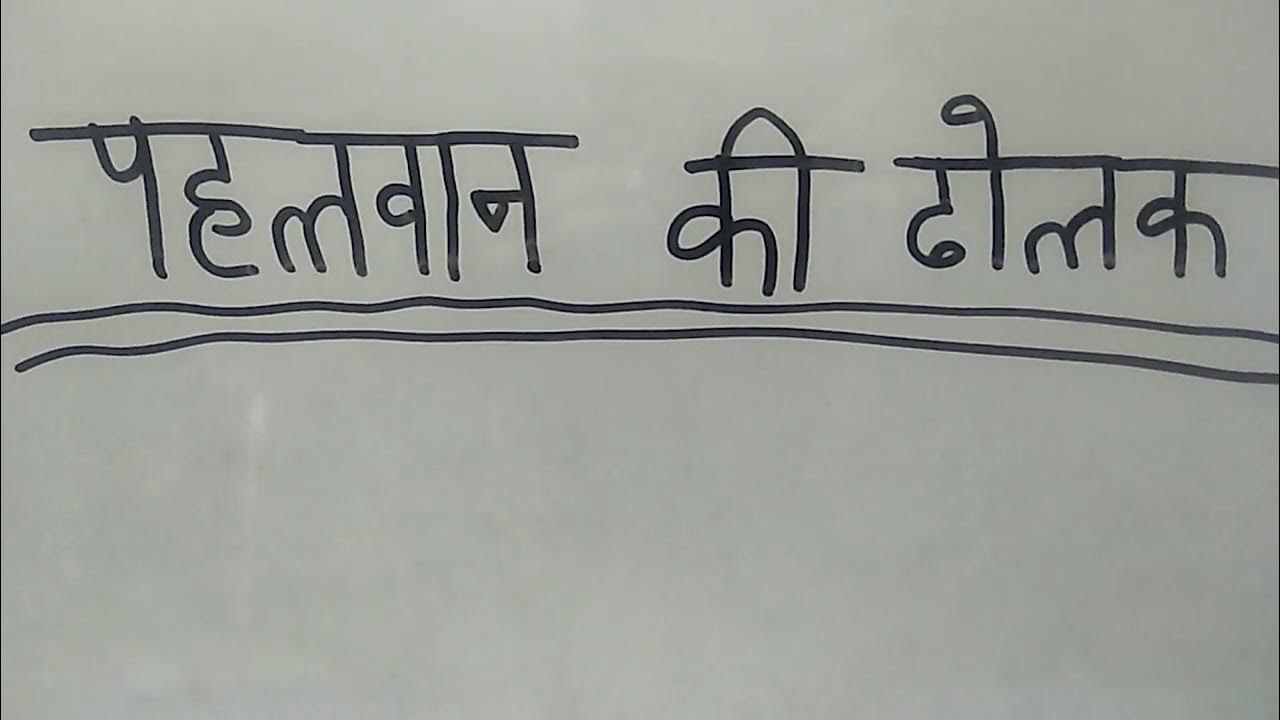 पहलवान की ढोलक